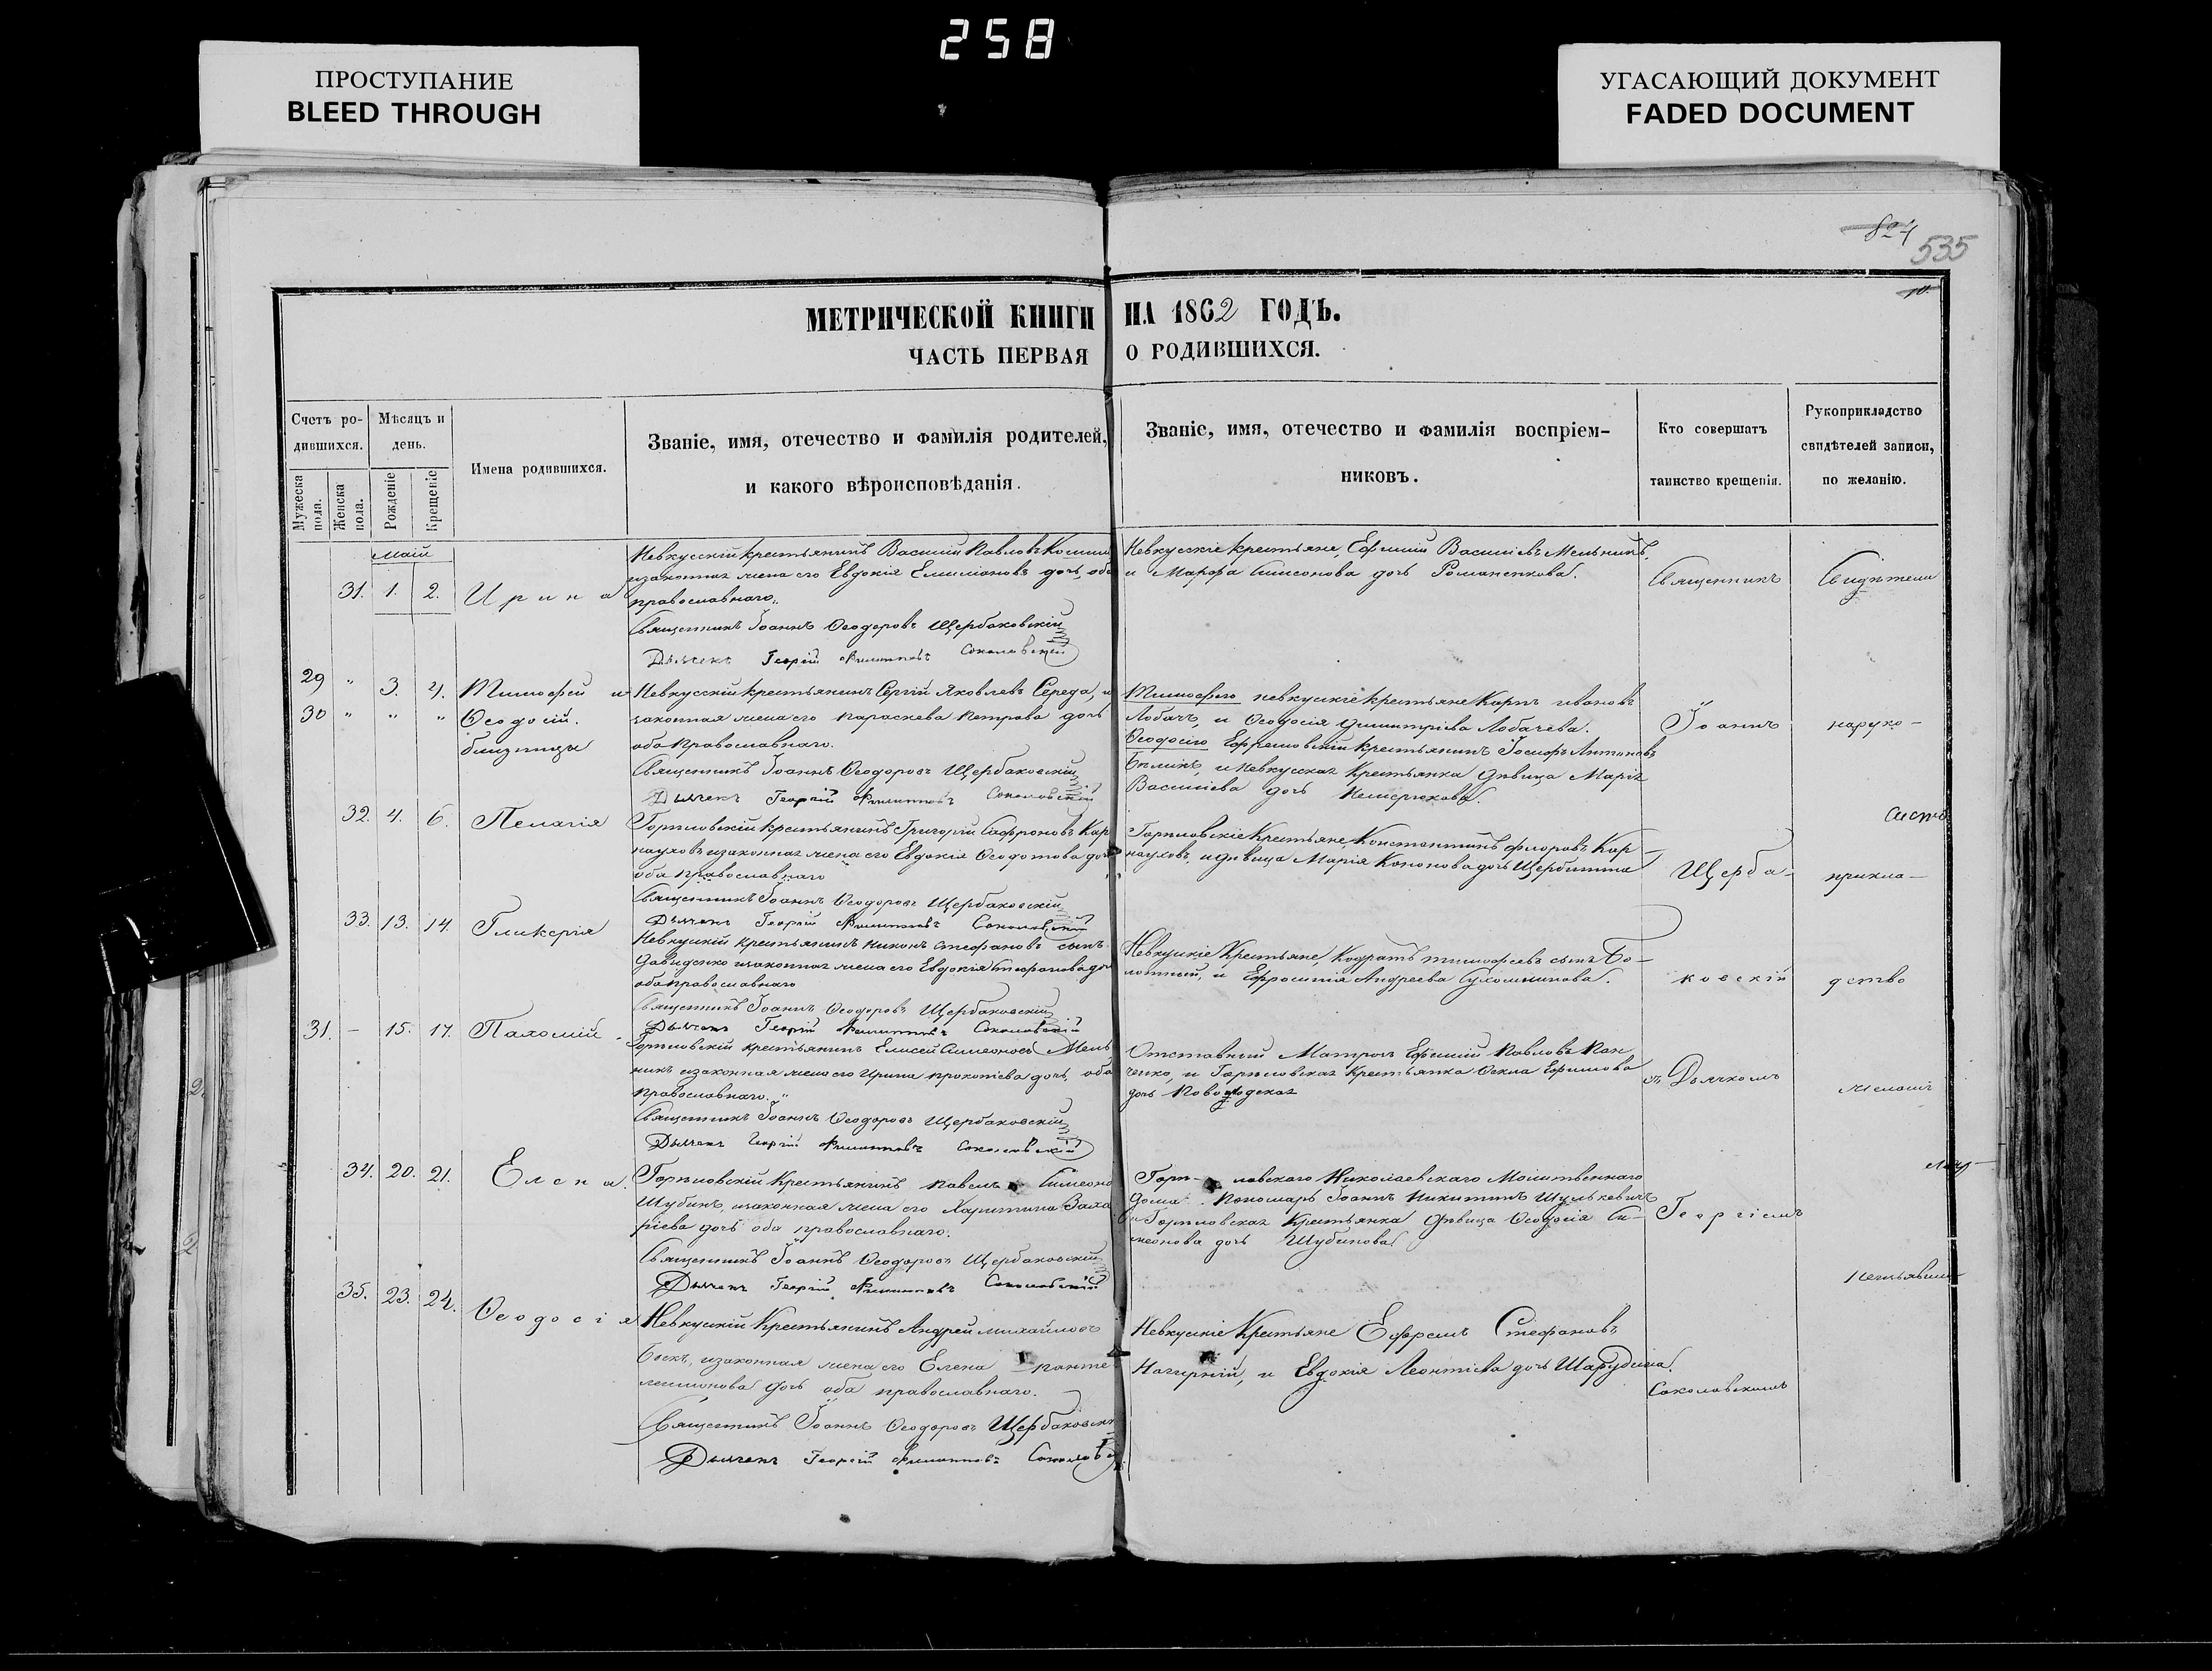 258
ПРОСТУПАНИЕ
BLEED THROUGH
УГАСАЮЩИЙ ДОКУМЕНТ
FADED DOCUMENT
535
МЕТРИЧЕСКОЙ КНИГИ НА 1862 ГОДЪ.
ЧАСТЬ ПЕРВАЯ О РОДИВШИХСЯ.
Счетъ ро-
дившихся.
Мужеска
пола.
Женска
пола.
Мѣсяцъ и
день.
Рожденіе
Крещеніе
Имена родившихся.
Званіе, имя, отечество и фамилія родителей,
и какого вѣроисповѣданія.
Званіе, имя, отечество и фамилія воспріем-
никовъ.
Кто совершатъ
таинство крещенія.
Рукоприкладство
свидѣтелей записи,
по желанію.
Маій
31. 1. 2. Ирина
Невкусскій крестьянинъ Василій Павловъ
изаконная жена его Евдокія Емиліонова дочь, оба
православнаго.
Священникъ Іоаннъ Ѳеодоровъ Щербаковскій
Дьячекъ Георгій Филипповъ Соколовскій
Невкусскіе крестьяне, Ефимій Василіевъ Мельникъ,
и Марфа Симеонова дочь Романенкова.
Священникъ
Свидѣтели
29 " 3. 4. Тимофей и
30 " " " Ѳеодосій.
близнецы
Невкусскій крестьянинъ Сергій Яковлевъ Середа, и
законная жена его Параскева Петрова дочь
оба православнаго.
Священникъ Іоаннъ Ѳеодоровъ Щербаковскій
Дьячекъ Георгій Филипповъ Соколовскій
Тимофею невкускіе крестьяне Карпъ ивановъ
Лобачъ, и Ѳеодосія Димитріева Лобачева.
Ѳеодосію Ефремовскій крестьянинъ Іосифъ Антоновъ
и Невкусская Крестьянка дѣвица Марія
Василіева дочь
Іоаннъ
наруко-
32. 4. 6. Пелагія
Горѣловскій крестьянинъ Григорій Сафроновъ Кар
науховъ изаконная жена его Евдокія Ѳеодотова дочь
оба православнаго
Священникъ Іоаннъ Ѳеодоровъ Щербаковскій
Дьячекъ Георгій Филипповъ Соколовскій
Горѣловскіе Крестьяне Константинъ Флоровъ Кар-
науховъ, и дѣвица Марія Кононова дочь Щербинина
Щерба-
прикла-
33. 13. 14. Гликерія
Невкускій крестьянинъ Никонъ Стефановъ сынъ
Давиденко изаконная жена его Евдокія Стефанова дочь
оба православнаго
Священникъ Іоаннъ Ѳеодоровъ Щербаковскій
Дьячекъ Георгій Филипповъ Соколовскій
Невкускіе Крестьяне, Кодратъ Тимофеевъ сынъ Бо-
лотный, и Ефросинія Андреева Сухомлинова.
ковскій
дство
31. - 15. 17. Пахомій
Горѣловскій крестьянинъ Елисей Симеоновъ Мель
никъ изаконная жена его Ирина Прокопіева дочь, оба
православнаго.
Священникъ Іоаннъ Ѳеодоровъ Щербаковскій
Дьячекъ Георгій Филипповъ Соколовскій
Отставный Матросъ Ефимій Павловъ Пан
ченко, и Горѣловская Крестьянка Ѳекла Ефимова
дочь
съ Дьячкомъ
желанія
34. 20. 21. Елена.
Горѣловскій Крестьянинъ Павелъ Симеоно
Шубинъ, изаконная жена его Харитина Заха
ріева дочь оба православнаго.
Священникъ Іоаннъ Ѳеодоровъ Щербаковскій
Дьячекъ Георгій Филипповъ Соколовскій
Горѣ- ловскаго Николаевскаго Молитвеннаго
Дома Пономарь Іоаннъ Никитинъ Шулькевичъ
и Горѣловская Крестьянка дѣвица Ѳеодосія Си-
меонова дочь Шубинова
Георгіемъ
35. 23. 24. Ѳеодосія
Невкускій Крестьянинъ Андрей Михайловъ
Быкъ, изаконная жена его Елена Панте
леимонова дочь оба православнаго.
Священникъ Іоаннъ Ѳеодоровъ Щербаковск
Дьячекъ Георгій Филипповъ Соколовс
Невкускіе Крестьяне Ефремъ Стефановъ
Нагирній, и Евдокія Леонтіева дочь Шарудина.
Соколовскимъ